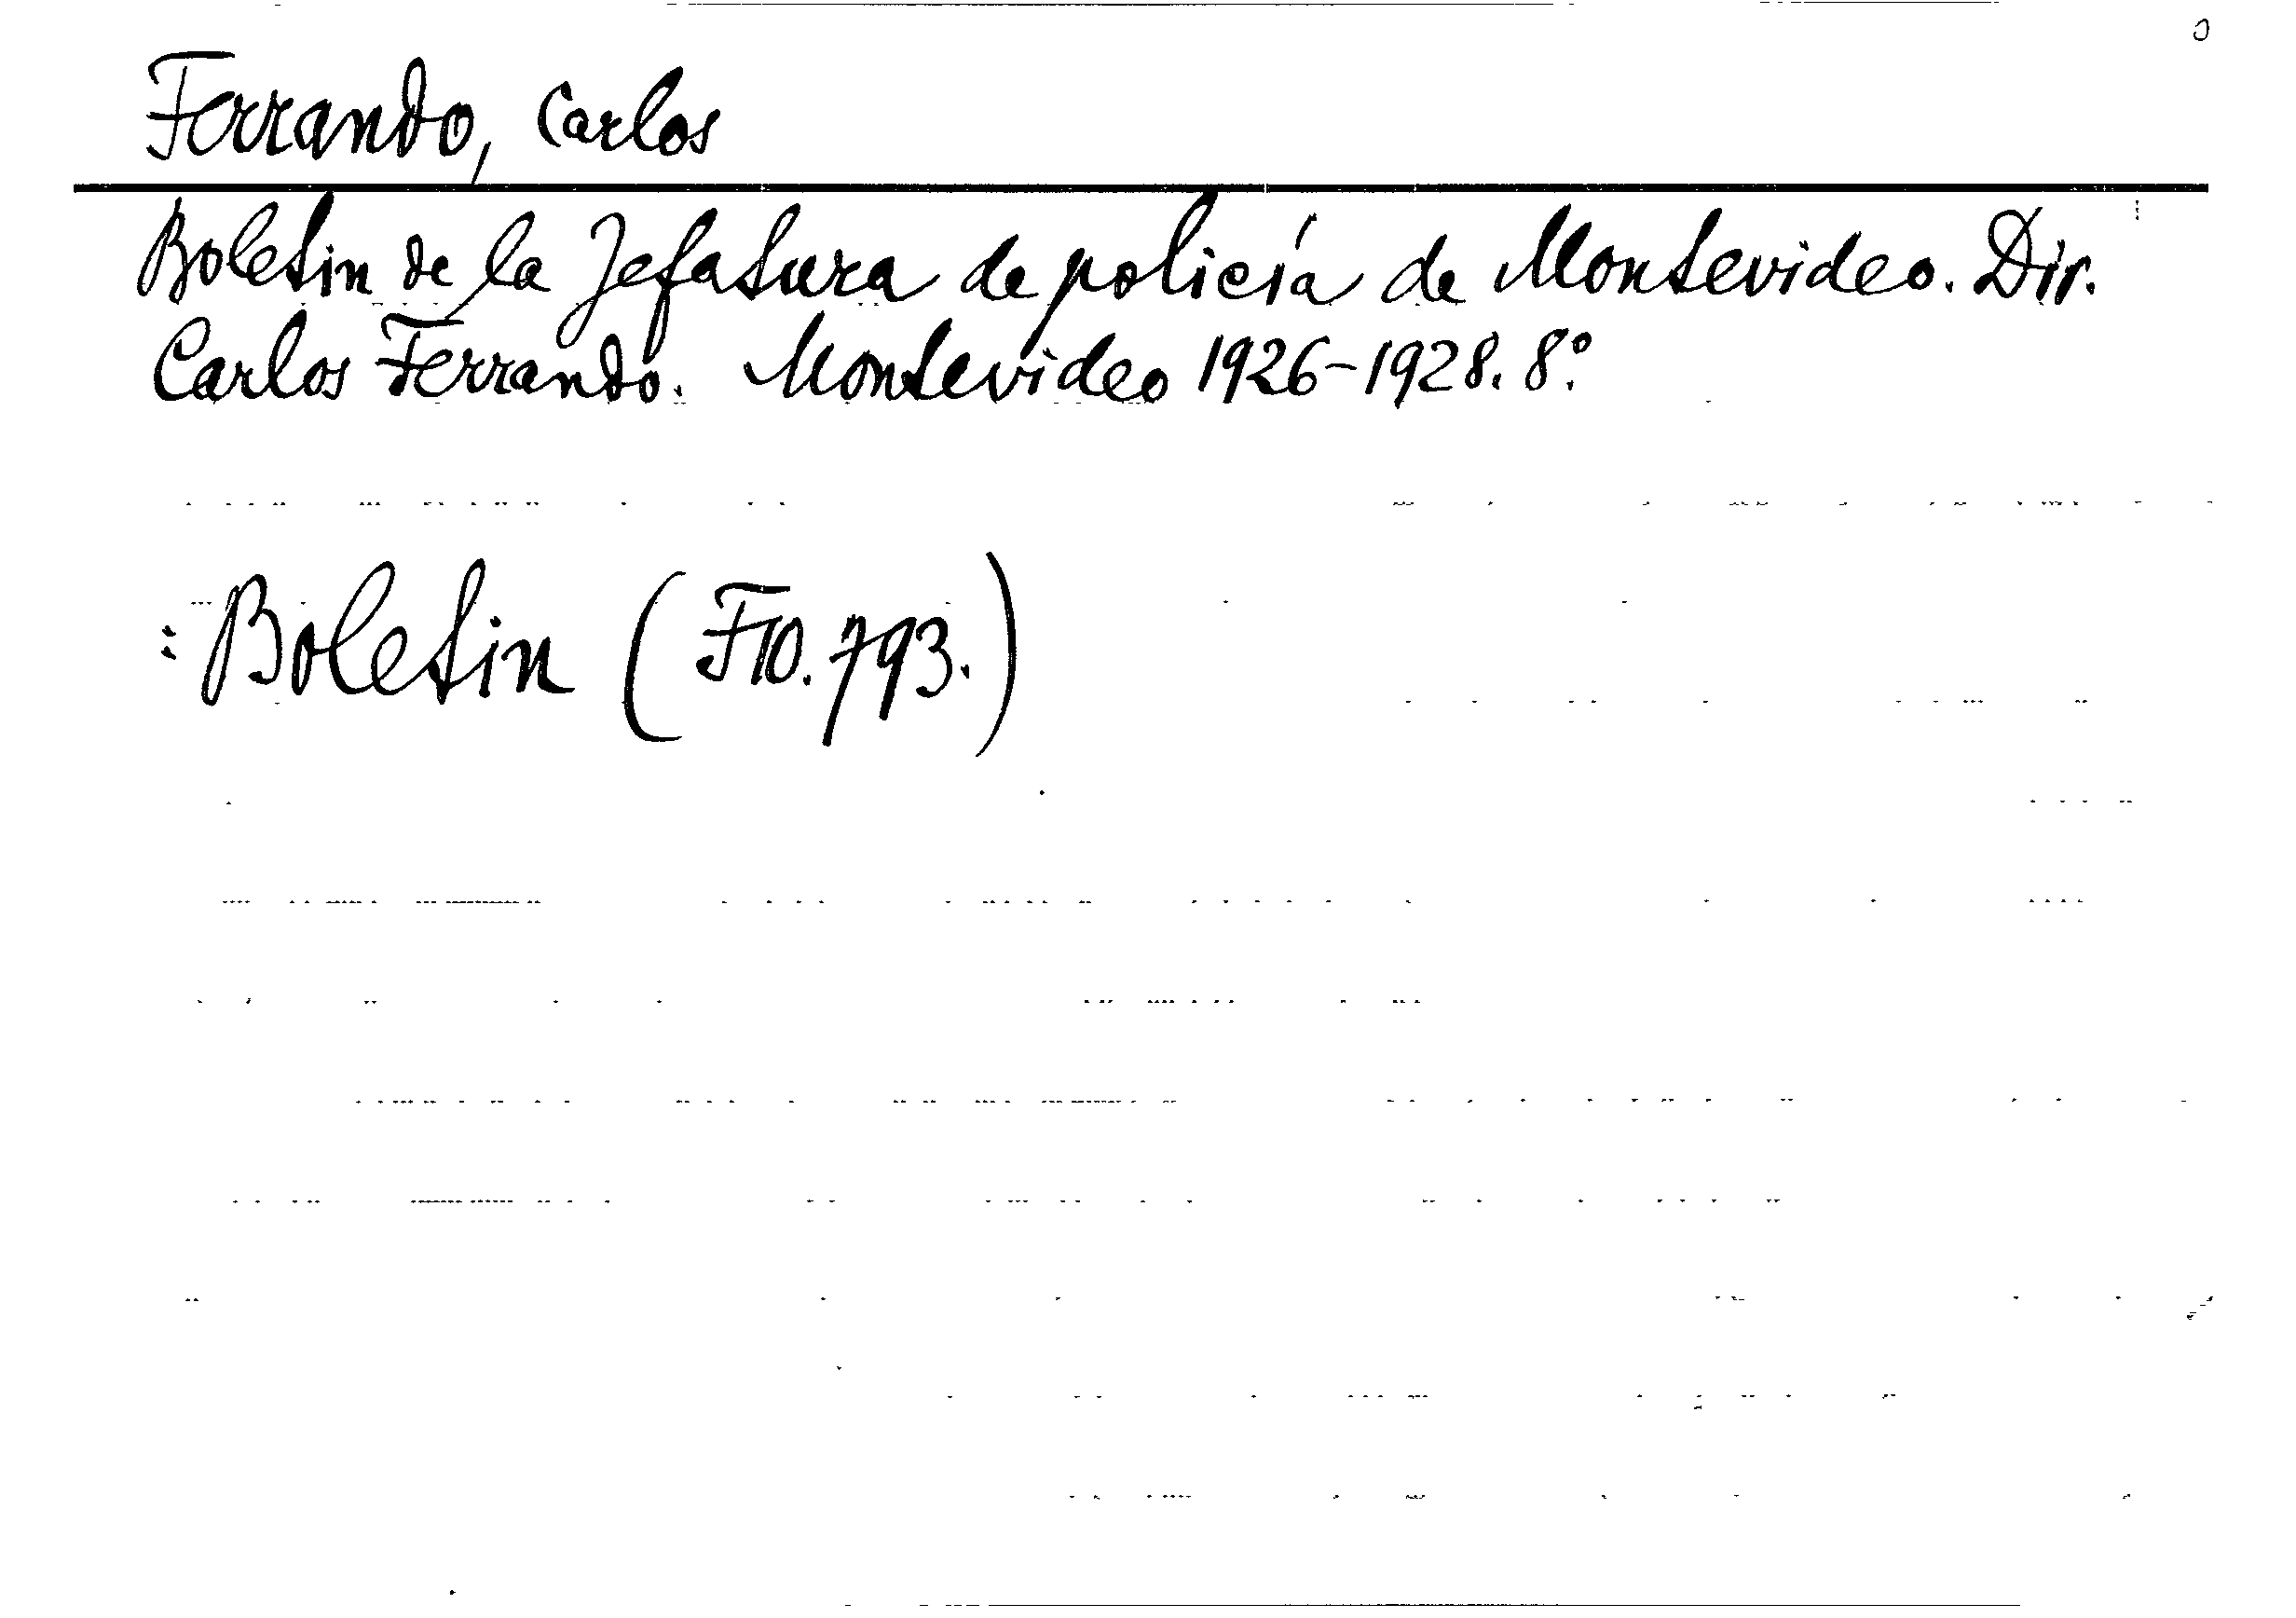 Ferrando, Carlos
Boletin de la Jefatura de policía de Montevideo. Dir.
Carlos Ferrando. Montevideo 1926-1928. 8º.
: Boletin (F10.793.)